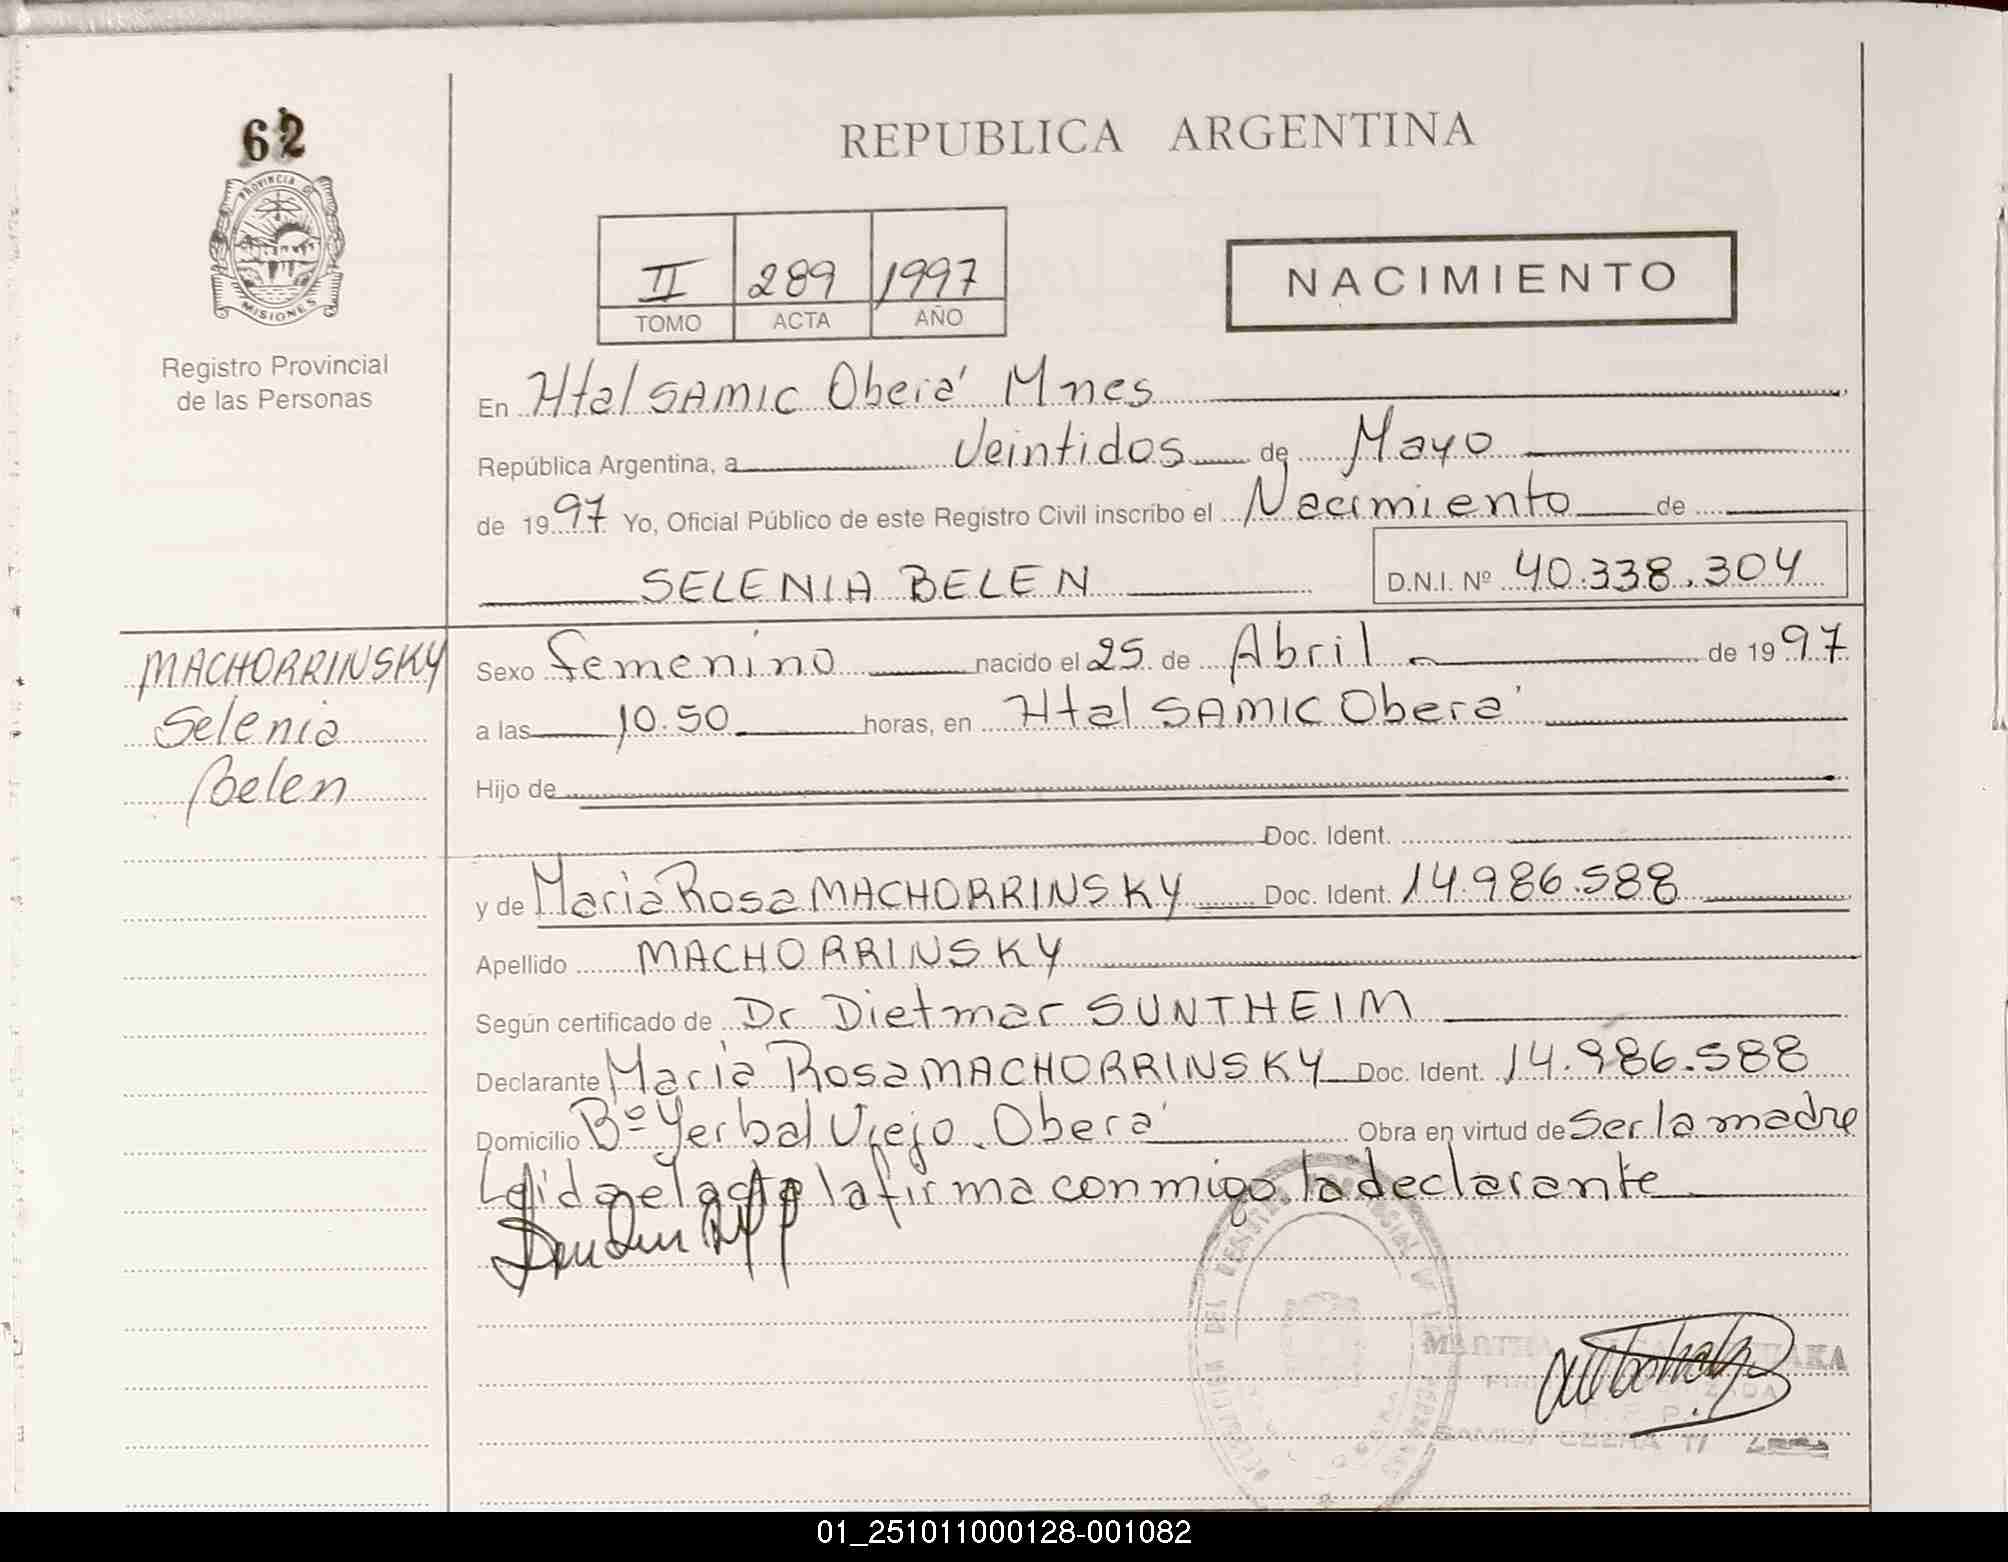 62
PROVINCIA D
MISIONES
Registro Provincial
de las Personas
REPUBLICA ARGENTINA
II 289 1997
TOMO ACTA AÑO
NACIMIENTO
En Htal SAMIC Oberá Mnes
República Argentina, a Veintidos de Mayo
de 1997 Yo, Oficial Público de este Registro Civil inscribo el Nacimiento de
SELENIA BELEN D.N.I. Nº 40.338.304
MACHORRINSKY
Selenia
Belen
Sexo femenino nacido el 25 de Abril de 1997
a las 10.50 horas, en Htal SAMIC Oberá
Hijo de
Doc. Ident.
y de Maria Rosa MACHORRINSKY Doc. Ident. 14.986.588
Apellido MACHORRINSKY
Según certificado de Dr Dietmar SUNTHEIM
Declarante Maria Rosa MACHORRINSKY Doc. Ident. 14.986.588
Domicilio Bº Yerbal Viejo. Oberá Obra en virtud de Ser la madre
Leida el acta la firma conmigo la declarante
MARTHA
01_251011000128-001082